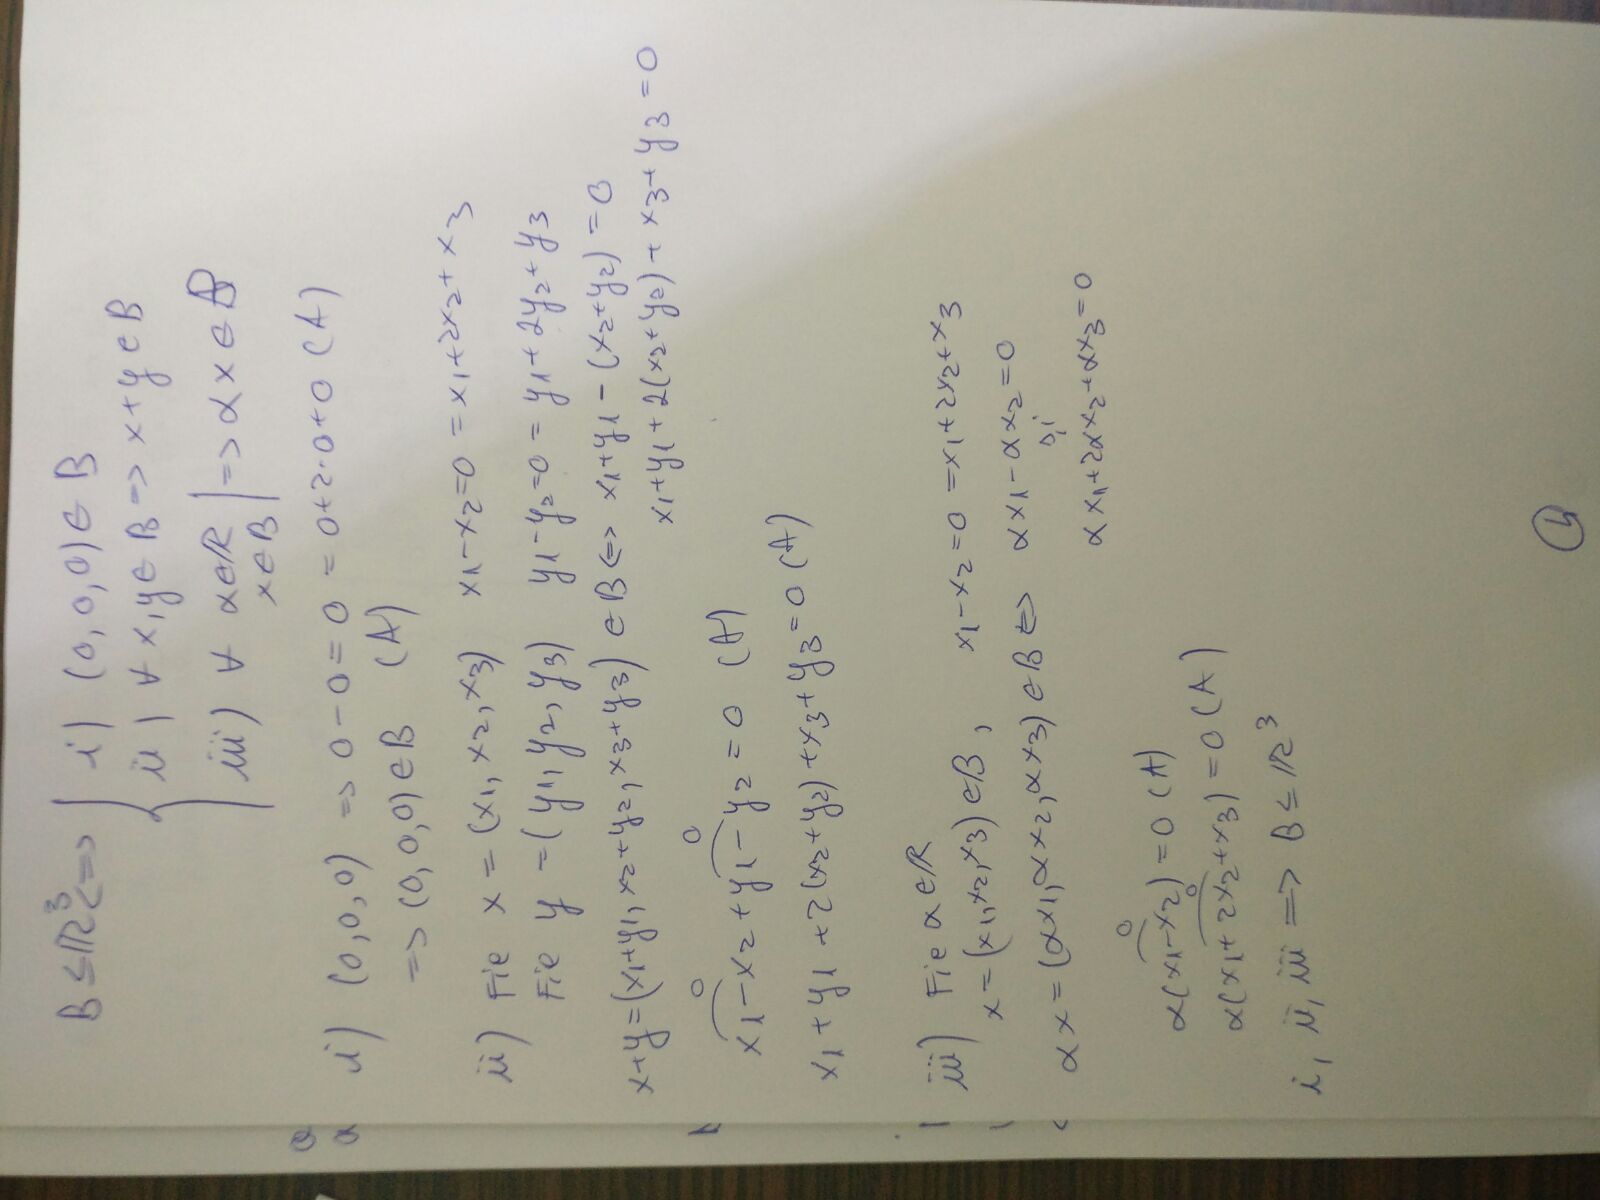 B ≤ ℝ³ <=> { i) (0,0,0) ∈ B
ii) ∀ x,y ∈ B => x+y ∈ B
iii) ∀ α∈ℝ | => αx ∈ B
x∈B
i) (0,0,0) => 0-0=0 = 0+2·0+0 (A)
=> (0,0,0) ∈ B (A)
ii) Fie x = (x1, x2, x3) x1-x2=0 = x1+2x2+x3
Fie y = (y1, y2, y3) y1-y2=0 = y1+2y2+y3
x+y=(x1+y1, x2+y2, x3+y3) ∈ B <=> x1+y1-(x2+y2)=0
x1+y1+2(x2+y2)+x3+y3=0
0 0
x1-x2+y1-y2=0 (A)
x1+y1+2(x2+y2)+x3+y3=0 (A)
iii) Fie α∈ℝ
x=(x1,x2,x3)∈B, x1-x2=0=x1+2x2+x3
αx=(αx1,αx2,αx3)∈B <=> αx1-αx2=0
și
αx1+2αx2+αx3=0
0
α(x1-x2)=0 (A)
0
α(x1+2x2+x3)=0 (A)
i, ii, iii => B ≤ ℝ³